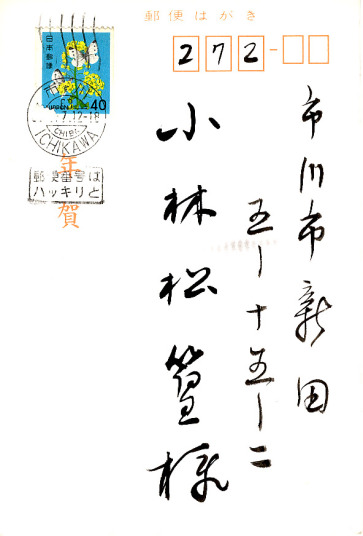 郵便はがき
272-
日本郵便
NIPPON
40
ICHIKAWA
CHIBA
12-18
年賀
郵便番号は
ハッキリと
市川市新田
五ー十五ー二
小林松篁様